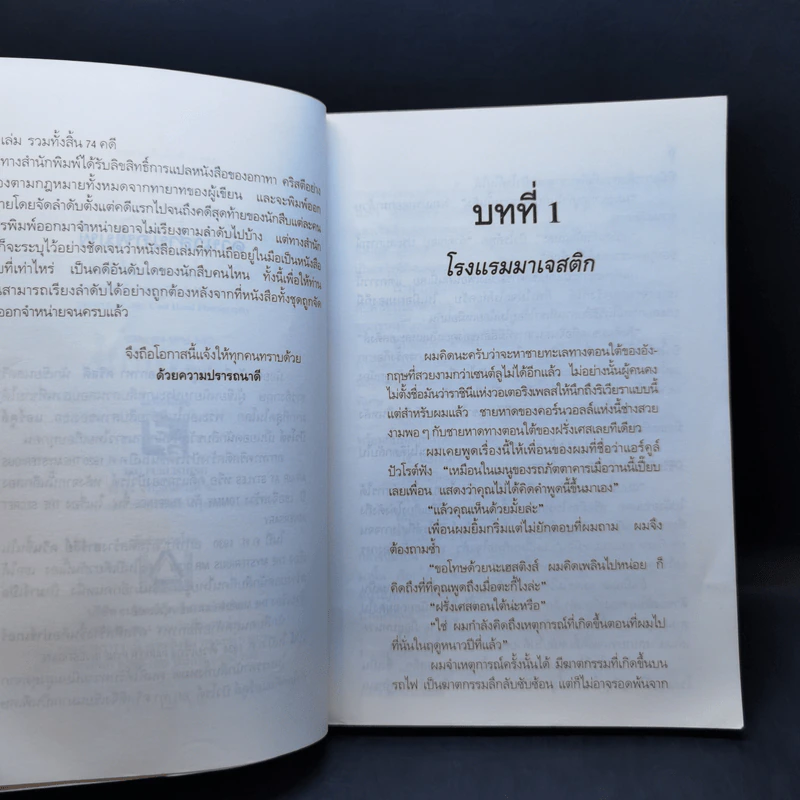 เล่ม รวมทั้งสิ้น 74 คดี
ทางสำนักพิมพ์ได้รับลิขสิทธิ์การแปลหนังสือของอกาทา คริสตีอย่าง
องตามกฎหมายทั้งหมดจากทายาทของผู้เขียน และจะพิมพ์ออก
ายโดยจัดลำดับตั้งแต่คดีแรกไปจนถึงคดีสุดท้ายของนักสืบแต่ละคน
รพิมพ์ออกมาจำหน่ายอาจไม่เรียงตามลำดับไปบ้าง แต่ทางสำนัก
ก็จะระบุไว้อย่างชัดเจนว่าหนังสือเล่มที่ท่านถืออยู่ในมือเป็นหนังสือ
บที่เท่าไหร่ เป็นคดีอันดับใดของนักสืบคนไหน ทั้งนี้เพื่อให้ท่าน
นสามารถเรียงลำดับได้อย่างถูกต้องหลังจากที่หนังสือทั้งชุดถูกจัด
ออกจำหน่ายจนครบแล้ว
จึงถือโอกาสนี้แจ้งให้ทุกคนทราบด้วย
ด้วยความปรารถนาดี
บทที่ 1
โรงแรมมาเจสติก
ผมคิดนะครับว่าจะหาชายทะเลทางตอนใต้ของอัง-
กฤษที่สวยงามกว่าเซนต์ลูไม่ได้อีกแล้ว ไม่อย่างนั้นผู้คนคง
ไม่ตั้งชื่อมันว่าราชินีแห่งวอเตอริงเพลสให้นึกถึงริเวียราแบบนี้
แต่สำหรับผมแล้ว ชายหาดของคอร์นวอลล์แห่งนี้ช่างสวย
งามพอ ๆ กับชายหาดทางตอนใต้ของฝรั่งเศสเลยทีเดียว
ผมเคยพูดเรื่องนี้ให้เพื่อนของผมที่ชื่อว่าแอร์คูล์
ปัวโรต์ฟัง “เหมือนในเมนูของรถภัตตาคารเมื่อวานนี้เปี๊ยบ
เลยเพื่อน แสดงว่าคุณไม่ได้คิดคำพูดนี้ขึ้นมาเอง”
“แล้วคุณเห็นด้วยมั้ยล่ะ”
เพื่อนผมยิ้มกริ่มแต่ไม่ยักตอบที่ผมถาม ผมจึง
ต้องถามซ้ำ
“ขอโทษด้วยนะเฮสติงส์ ผมคิดเพลินไปหน่อย ก็
คิดถึงที่ที่คุณพูดถึงเมื่อตะกี้ไงล่ะ”
“ฝรั่งเศสตอนใต้น่ะหรือ”
“ใช่ ผมกำลังคิดถึงเหตุการณ์ที่เกิดขึ้นตอนที่ผมไป
ที่นั่นในฤดูหนาวปีที่แล้ว”
ผมจำเหตุการณ์ครั้งนั้นได้ มีฆาตกรรมที่เกิดขึ้นบน
รถไฟ เป็นฆาตกรรมลึกลับซับซ้อน แต่ก็ไม่อาจรอดพ้นจาก